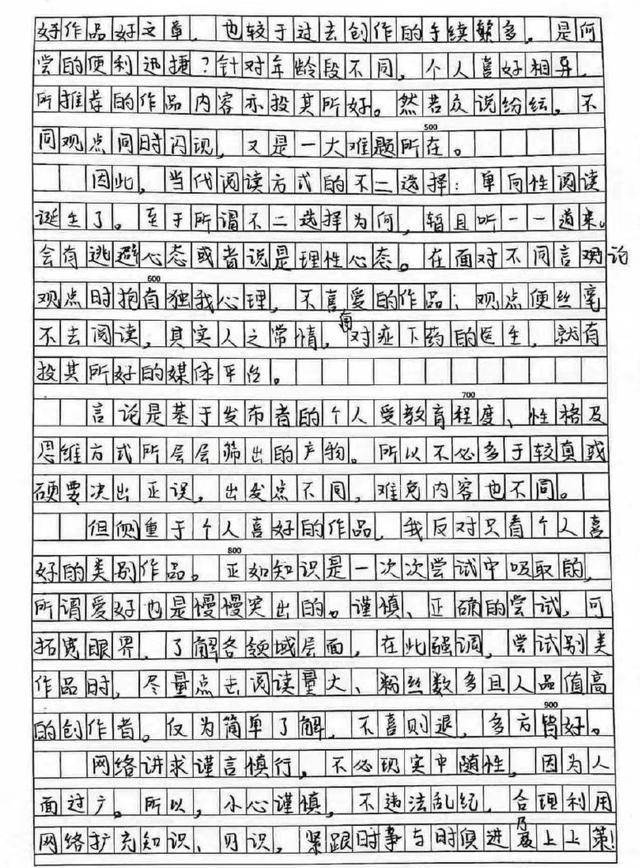 好作品好文章，也较于过去创作的手续繁多，是何
尝的便利迅捷？针对年龄段不同，个人喜好相异，
所推荐的作品内容亦投其所好。然若众说纷纭，不
同观点同时闪现，又是一大难题所在。
500
因此，当代阅读方式的不二选择：单向性阅读
诞生了。至于所谓不二选择为何，暂且听一一道来。
会有逃避心态或者说是理性心态。在面对不同言论
600
观点时抱有独我心理，不喜爱的作品；观点便丝毫
不去阅读，其实人之常情，有对症下药的医生，就有
投其所好的媒体平台。
700
言论是基于发布者的个人受教育程度、性格及
思维方式所层层筛出的产物。所以不必多于较真或
硬要决出正误，出发点不同，难免内容也不同。
但侧重于个人喜好的作品，我反对只看个人喜
800
好的类别作品。正如知识是一次次尝试中吸取的，
所谓爱好也是慢慢突出的。谨慎、正确的尝试，可
拓宽眼界，了解各领域层面，在此强调，尝试别类
作品时，尽量点去阅读量大、粉丝数多且人品值高
900
的创作者。仅为简单了解，不喜则退，多方皆好。
网络讲求谨言慎行，不必现实中随性，因为人
面过广。所以，小心谨慎，不违法乱纪，合理利用
网络扩充知识、见识，紧跟时事与时俱进乃是上上策！